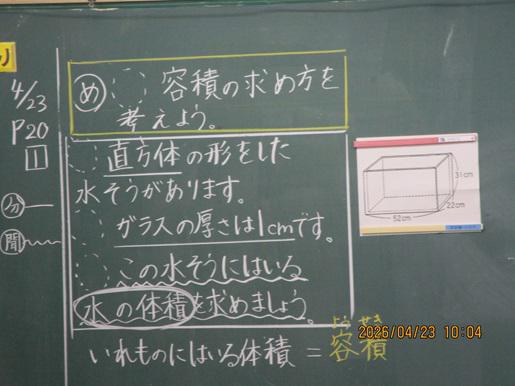 4/23
P20
1
め 容積の求め方を
考えよう。
直方体の形をした
水そうがあります。
ガラスの厚さは1cmです。
この水そうにはいる
水の体積を求めましょう。
分
聞
31cm
22cm
52cm
いれものにはいる体積 = 容積
ようせき
2026/04/23 10:04